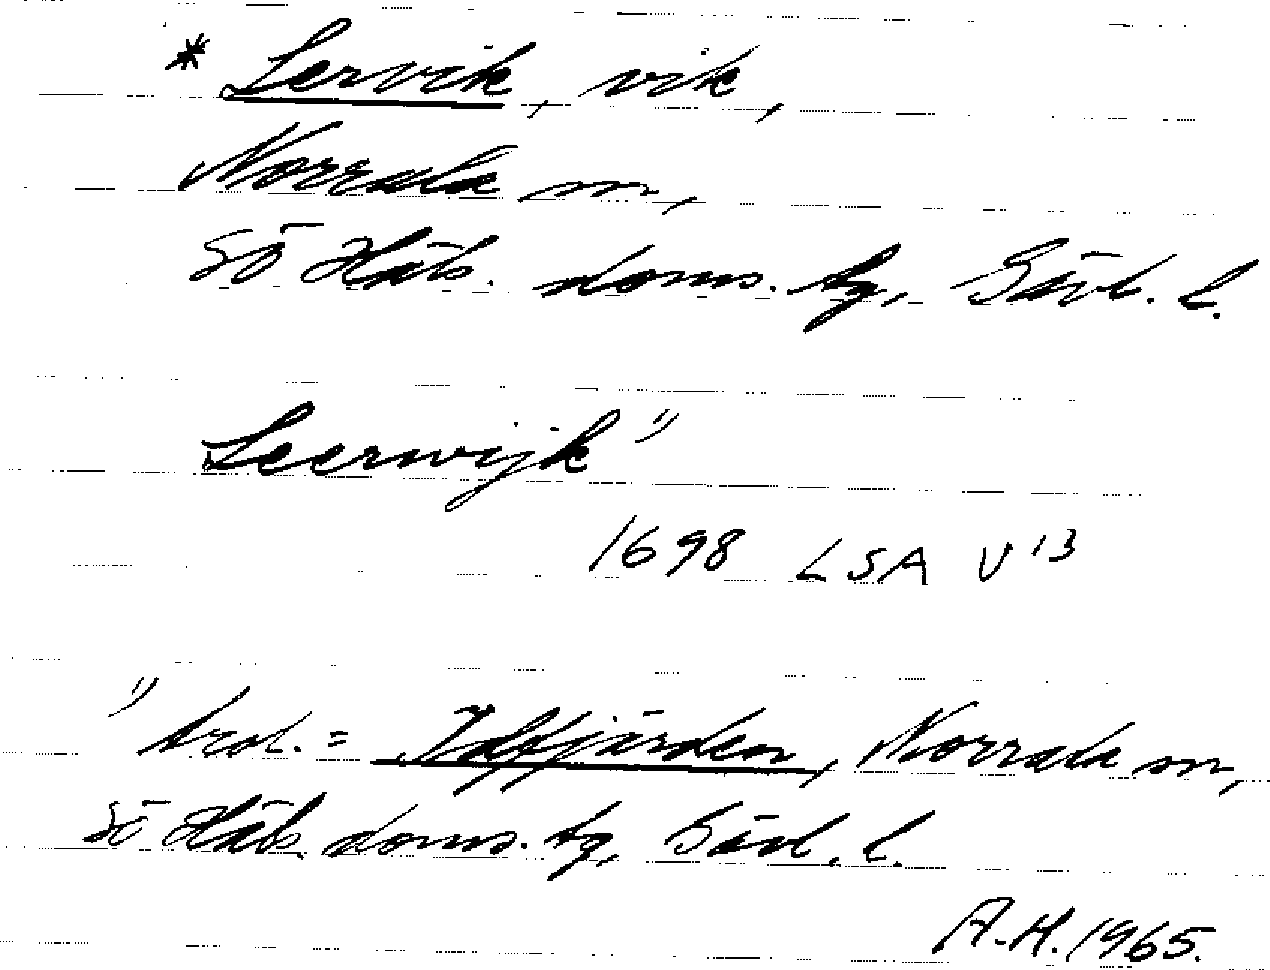 * Lervik, vik,
Norrala sn,
Sö Häls. doms. tg, Gävl. l.
Leerwijk 1)
1698 LSA V 13
1) trol. = Idsfjärden, Norrala sn,
Sö Häls. doms. tg, Gävl. l.
A.H. 1965.